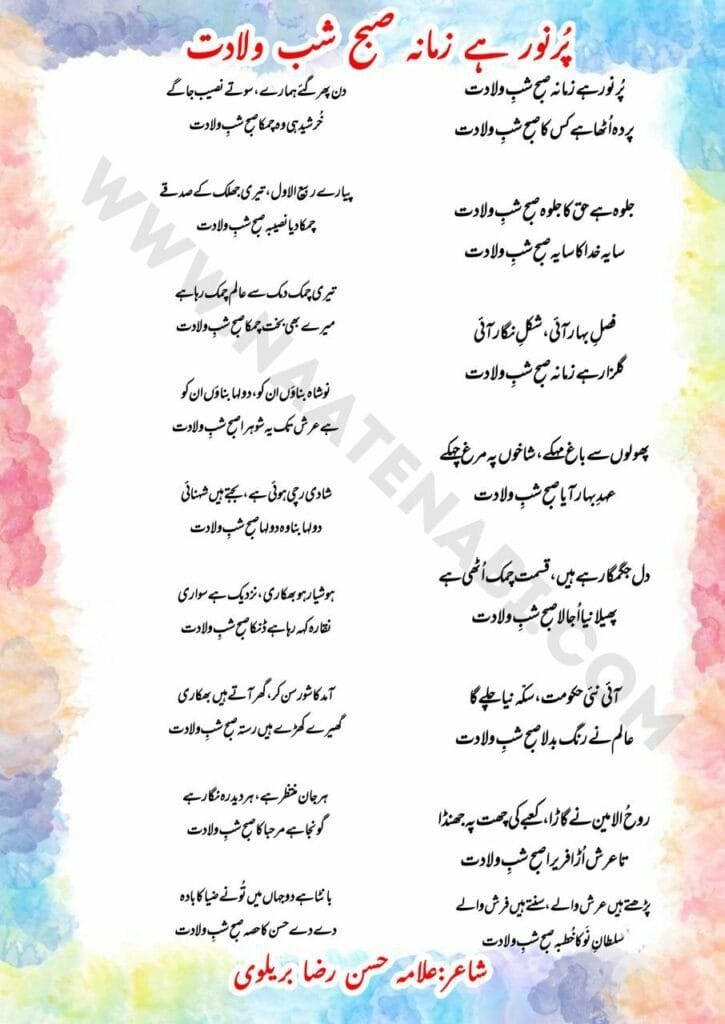 پُرنور ہے زمانہ صبح شب ولادت
پُرنور ہے زمانہ صبح شبِ ولادت
پردہ اُٹھا ہے کس کا صبح شبِ ولادت
جلوہ ہے حق کا جلوہ صبح شبِ ولادت
سایہ خدا کا سایہ صبح شبِ ولادت
فصلِ بہار آئی، شکلِ نگار آئی
گلزار ہے زمانہ صبح شبِ ولادت
پھولوں سے باغ مہکے، شاخوں پہ مرغ چہکے
عہدِ بہار آیا صبح شبِ ولادت
دل جگمگا رہے ہیں، قسمت چمک اُٹھی ہے
پھیلا نیا اُجالا صبح شبِ ولادت
آئی نئی حکومت، سکّہ نیا چلے گا
عالم نے رنگ بدلا صبح شبِ ولادت
روحُ الامین نے گاڑا، کعبے کی چھت پہ جھنڈا
تا عرش اُڑا فریرا صبح شبِ ولادت
پڑھتے ہیں عرش والے، سنتے ہیں فرش والے
سلطانِ نَو کا خُطبہ صبح شبِ ولادت
دن پھر گئے ہمارے، سوتے نصیب جاگے
خُرشید ہی وہ چمکا صبح شبِ ولادت
پیارے ربیع الاول، تیری جھلک کے صدقے
چمکا دیا نصیبہ صبح شبِ ولادت
تیری چمک دمک سے عالم چمک رہا ہے
میرے بھی بخت چمکا صبح شبِ ولادت
نوشاہ بناؤں ان کو، دولہا بناؤں ان کو
ہے عرش تک یہ شوہرا صبح شبِ ولادت
شادی رچی ہوئی ہے، بجتے ہیں شہنائی
دولہا بنا وہ دولہا صبح شبِ ولادت
ہوشیار ہو بھکاری، نزدیک ہے سواری
نقارہ کہہ رہا ہے ڈنکا صبح شبِ ولادت
آمد کا شور سن کر، گھر آتے ہیں بھکاری
گھیرے کھڑے ہیں رستہ صبح شبِ ولادت
ہر جان منتظر ہے، ہر دیدہ رہ نگار ہے
گونجا ہے مرحبا کا صبح شبِ ولادت
بانٹا ہے دو جہاں میں تُو نے ضیا کا بادہ
دے دے حسن کا حصہ صبح شبِ ولادت
شاعر:علامہ حسن رضا بریلوی
WWW.NAATENABI.COM